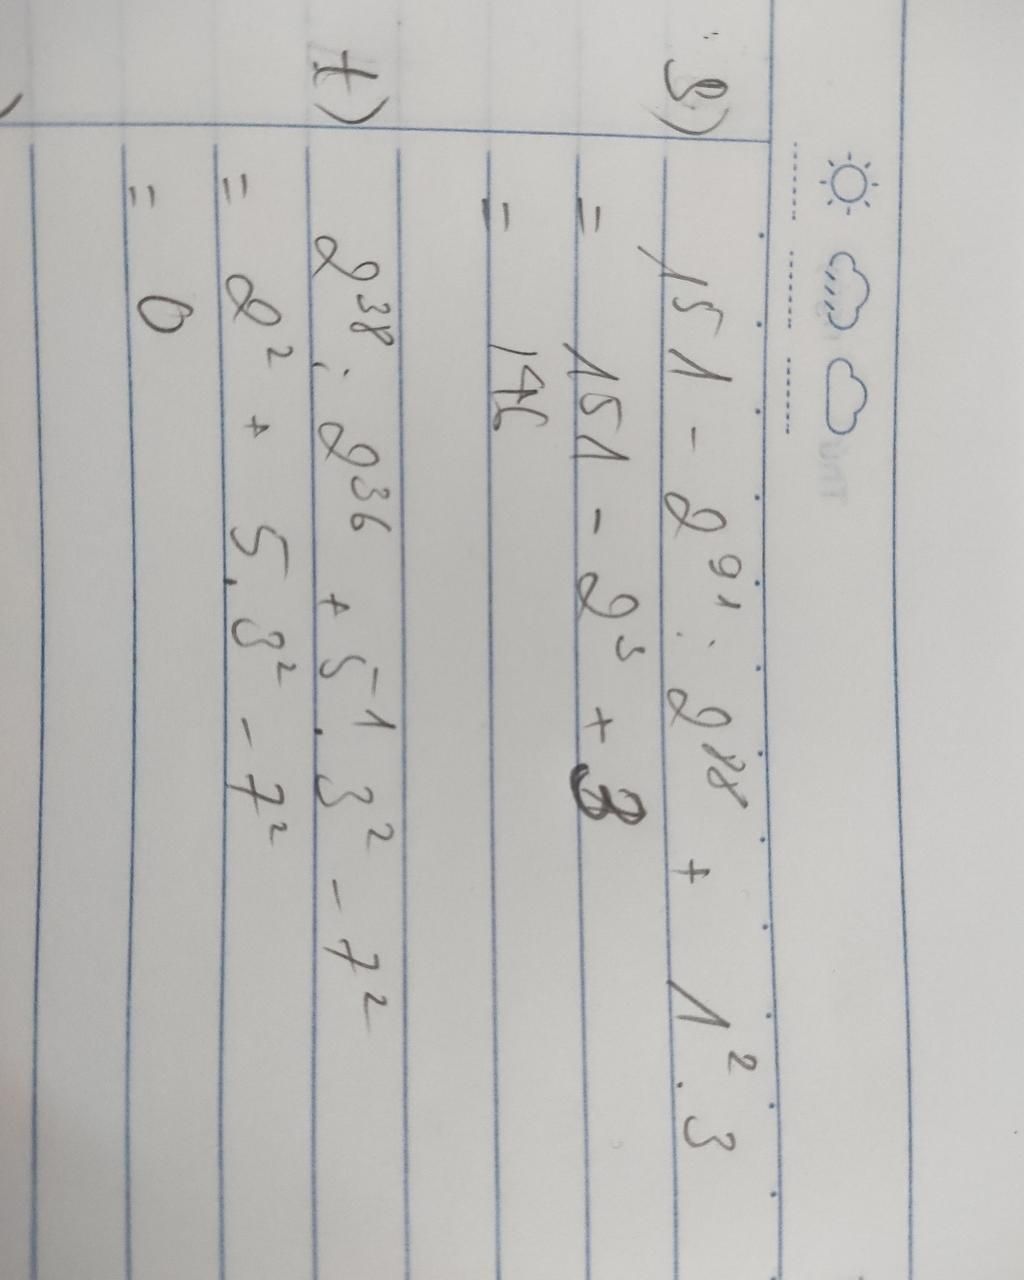 s) 151 - 2⁹¹ : 2⁸⁸ + 1² . 3
= 151 - 2³ + 3
= 146
t) 2³⁸ : 2³⁶ + 5¹ . 3² - 7²
= 2² + 5 . 3² - 7²
= 0